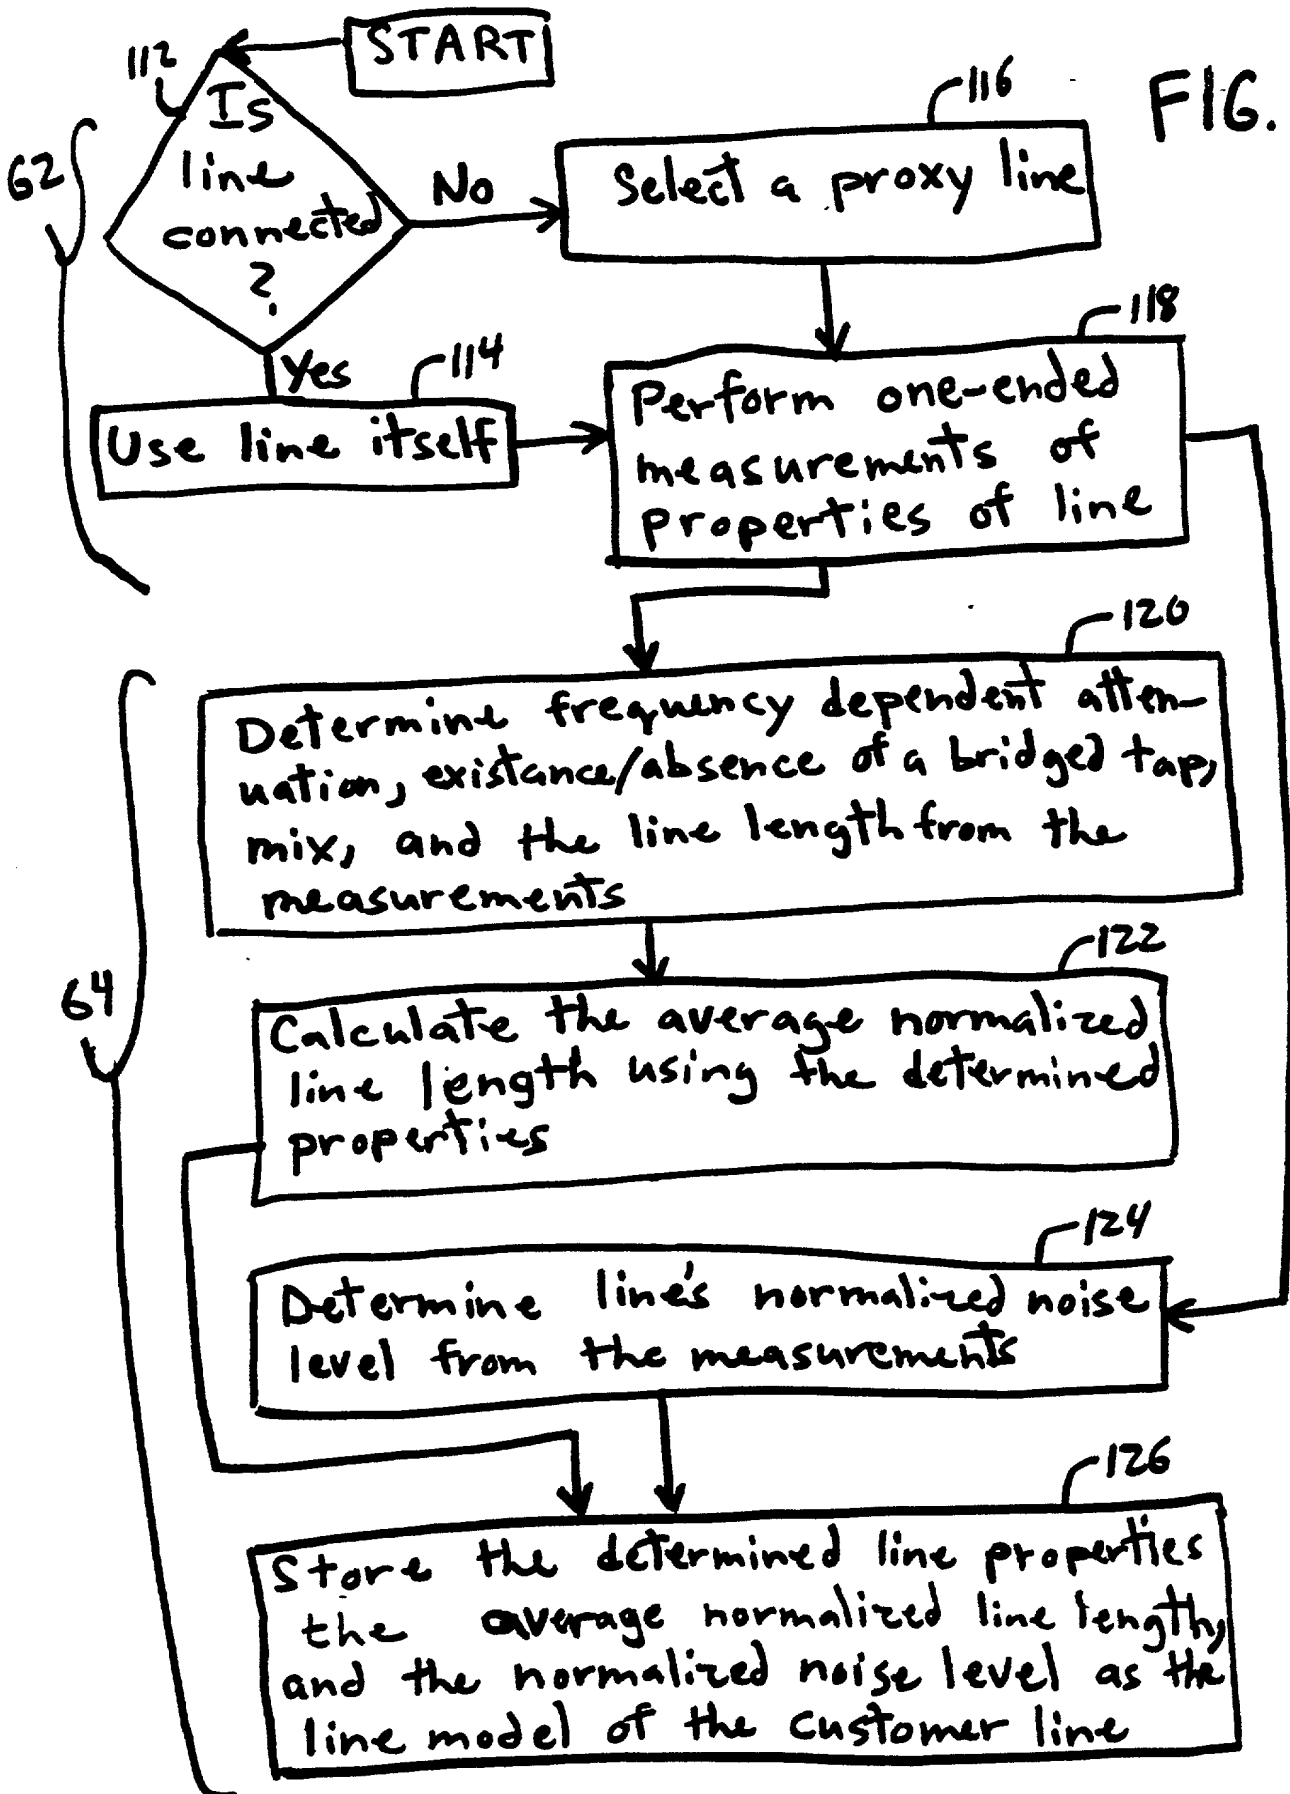 START
112
Is
line
connected
?
62
No
116
FIG.
Select a proxy line
Yes
114
Use line itself
118
Perform one-ended
measurements of
properties of line
120
Determine frequency dependent atten-
uation, existance/absence of a bridged tap,
mix, and the line length from the
measurements
64
122
Calculate the average normalized
line length using the determined
properties
124
Determine line's normalized noise
level from the measurements
126
Store the determined line properties
the average normalized line length,
and the normalized noise level as the
line model of the customer line